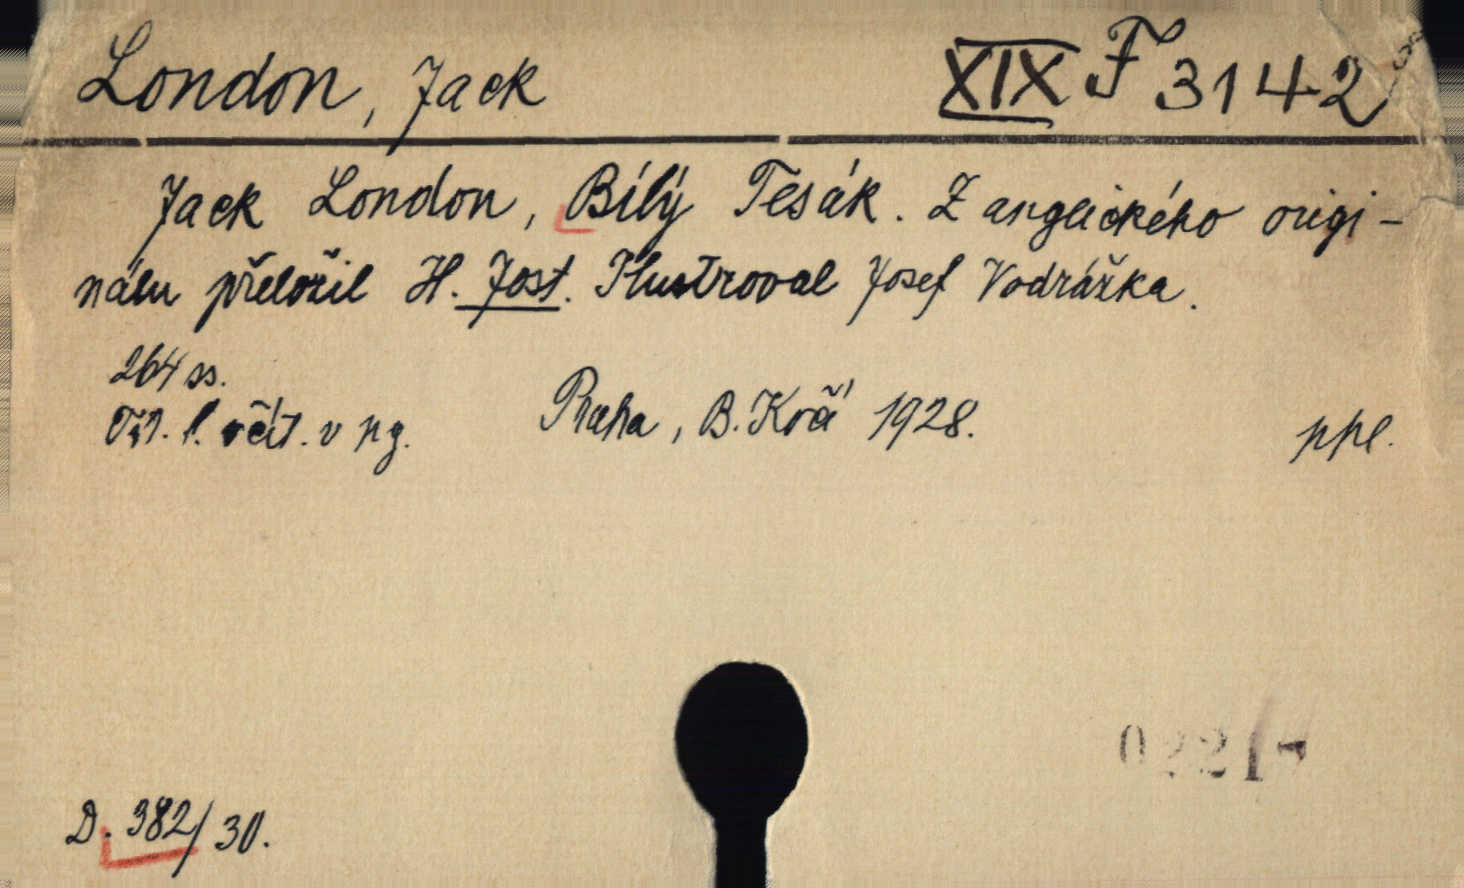 London, Jack XIX F 3142
Jack London, Bílý Tesák. Z anglického origi-
nálu přeložil H. Jost. Ilustroval Josef Vodrážka.
264 ss.
Praha, B. Kočí 1928. ppl.
02217
D. 382/30.